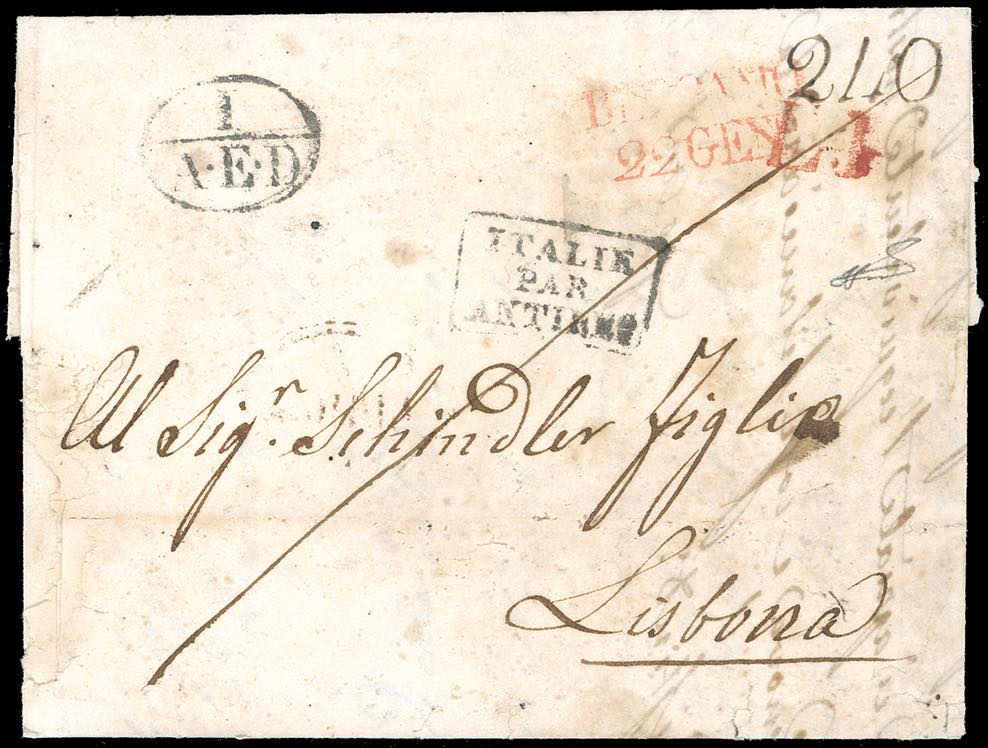 210
1
A·E·D
22 GEN
L.I
ITALIE
PAR
ANTIBES
Al Sigr. Schindler Figlio
Lisbona